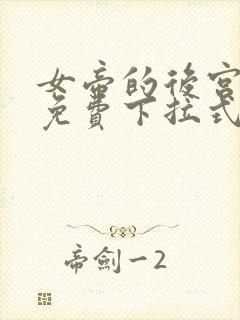 女帝的後宮
免費下拉式
帝劍一2